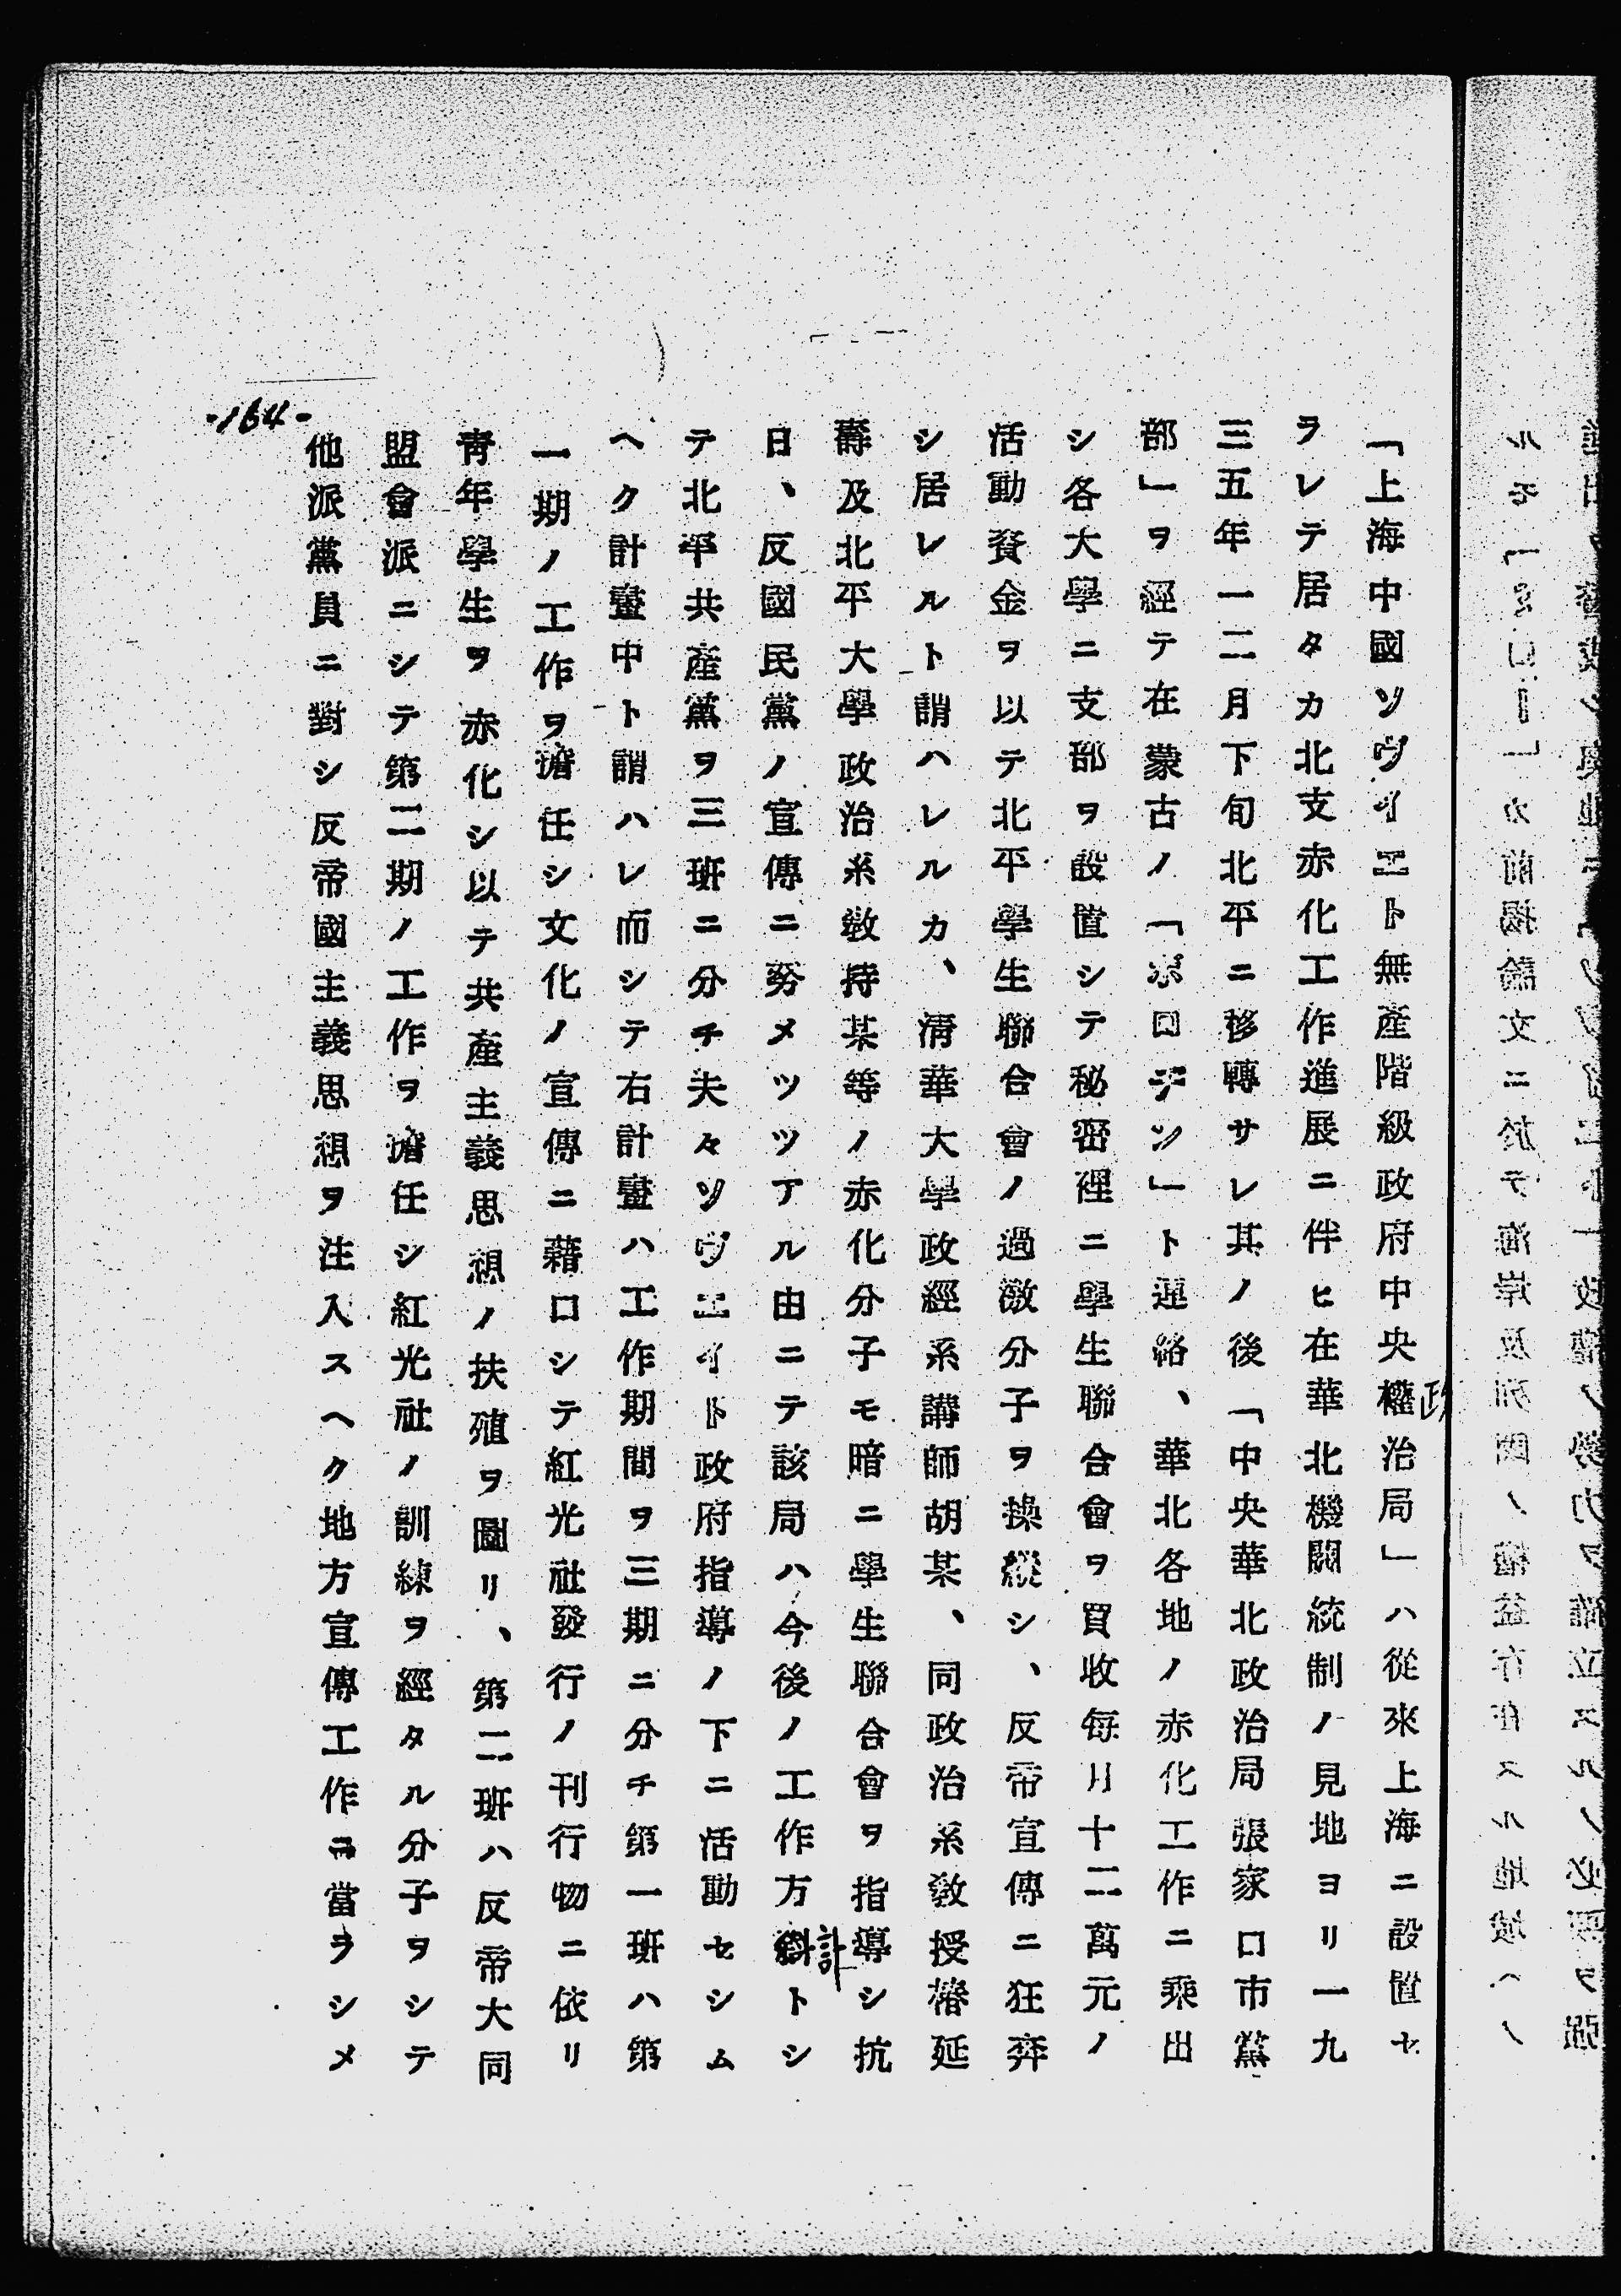 「上海中國ソヴィエト無產階級政府中央權治局」ハ從來上海ニ設置セ
政
ラレテ居タカ北支赤化工作進展ニ伴ヒ在華北機關統制ノ見地ヨリ一九
三五年一二月下旬北平ニ移轉サレ其ノ後「中央華北政治局張家口市黨
部」ヲ經テ在蒙古ノ「ボロヂン」ト連絡、華北各地ノ赤化工作ニ乘出
シ各大學ニ支部ヲ設置シテ秘密裡ニ學生聯合會ヲ買收每月十二萬元ノ
活動資金ヲ以テ北平學生聯合會ノ過激分子ヲ操縱シ、反帝宣傳ニ狂奔
シ居レルト謂ハレルカ、淸華大學政經系講師胡某、同政治系敎授樁延
壽及北平大學政治系敎持某等ノ赤化分子モ暗ニ學生聯合會ヲ指導シ抗
日、反國民黨ノ宣傳ニ努メツツアル由ニテ該局ハ今後ノ工作方トシ
計
テ北平共產黨ヲ三班ニ分チ夫々ソヴエイト政府指導ノ下ニ活動セシム
ヘク計畫中ト謂ハレ而シテ右計畫ハ工作期間ヲ三期ニ分チ第一班ハ第
一期ノ工作ヲ擔任シ文化ノ宣傳ニ藉口シテ紅光社發行ノ刊行物ニ依リ
靑年學生ヲ赤化シ以テ共產主義思想ノ扶殖ヲ圖リ、第二班ハ反帝大同
盟會派ニシテ第二期ノ工作ヲ擔任シ紅光社ノ訓練ヲ經タル分子ヲシテ
他派黨員ニ對シ反帝國主義思想ヲ注入スヘク地方宣傳工作ニ當ラシメ
-164-